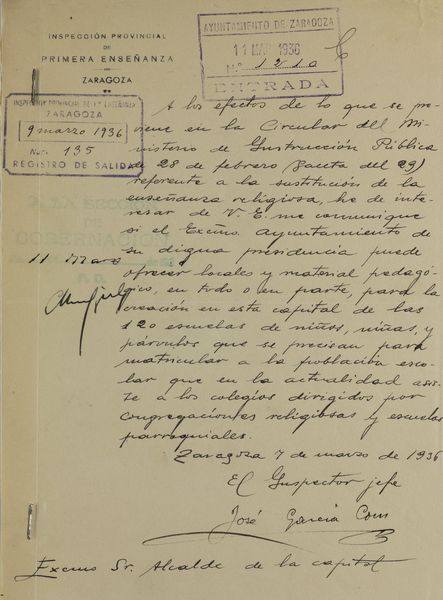 INSPECCIÓN PROVINCIAL
DE
PRIMERA ENSEÑANZA
ZARAGOZA
AYUNTAMIENTO DE ZARAGOZA
11 MAR 1936
N.º 1210
ENTRADA
INSPECCIÓN PROVINCIAL DE 1.ª ENSEÑANZA
ZARAGOZA
9 marzo 1936
Núm. 135
REGISTRO DE SALIDA
A los efectos de lo que se pre-
viene en la Circular del Mi-
nisterio de Instrucción Pública
de 28 de febrero (Gaceta del 29)
referente a la sustitución de la
enseñanza religiosa, he de inte-
resar de V. E. me comunique
si el Excmo. Ayuntamiento de
su digna presidencia puede
ofrecer locales y material pedagó-
gico, en todo o en parte, para la
creación en esta capital de las
120 escuelas de niños, niñas, y
párvulos que se precisan para
matricular a la población esco-
lar que en la actualidad asis-
te a los colegios dirigidos por
congregaciones religiosas y escuelas
parroquiales.
GOBERNACIÓN
11 Marzo
P. O.
Zaragoza 7 de marzo de 1936
El Inspector jefe
José García
Excmo Sr. Alcalde de la capital